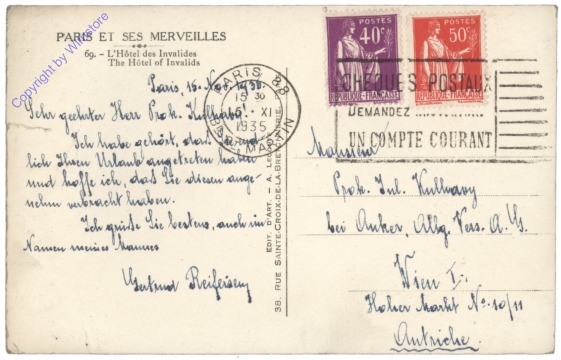 PARIS ET SES MERVEILLES
69. - L'Hôtel des Invalides
The Hôtel of Invalids
Copyright by Winstore
Paris, 15. Nov. 1935.
Sehr geehrter Herr Prok. Kulhavy
Ich habe gehört, das
lich Ihren Urlaub angetreten haben
und hoffe ich, das Sie diesen ange-
nehm verbracht haben.
Ich grüße Sie bestens, auch im
Namen meines Mannes
Gertrud
EDIT. D'ART.
38, RUE SAINTE-CROIX-DE-LA-BRETONNERIE
PARIS 88
15 30
XI
1935
MARTIN
40c
POSTES
REPUBLIQUE FRANÇAISE
50c
POSTES
REPUBLIQUE FRANÇAISE
CHEQUES POSTAUX
DEMANDEZ
UN COMPTE COURANT
Monsieur
Prok. Jul. Kulhavy
bei Anker, Allg. Vers. A. G.
Wien I.
Hoher Markt No. 10/11
Autriche.